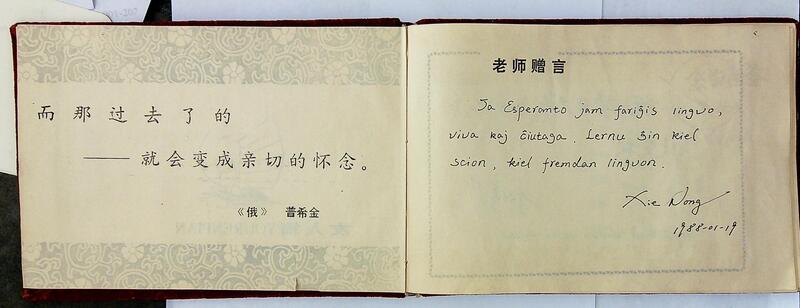 而那过去了的
——就会变成亲切的怀念。
《俄》 普希金
老师赠言
Ja Esperanto jam fariĝis lingvo,
viva kaj ĉiutaga. Lernu ĝin kiel
scion, kiel fremdan lingvon.
Xie Dong
1988-01-19